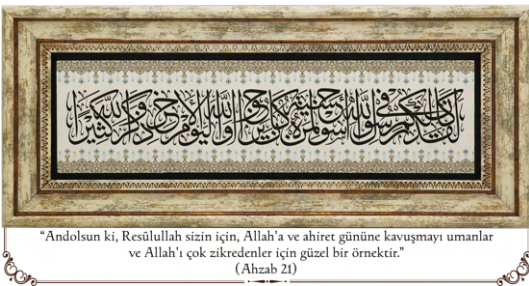 لقد كان لكم في رسول الله أسوة حسنة لمن كان يرجو الله واليوم الآخر وذكر الله كثيرا
“Andolsun ki, Resûlullah sizin için, Allah'a ve ahiret gününe kavuşmayı umanlar
ve Allah'ı çok zikredenler için güzel bir örnektir.”
(Ahzab 21)